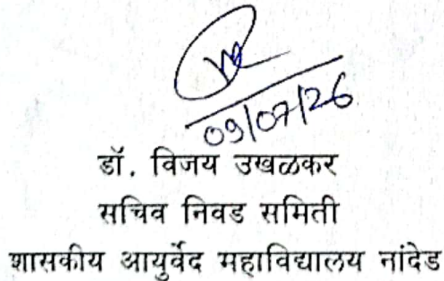 09/07/26
डॉ. विजय उखळकर
सचिव निवड समिती
शासकीय आयुर्वेद महाविद्यालय नांदेड